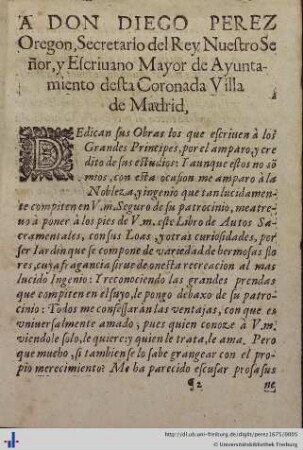 A DON DIEGO PEREZ
Oregon, Secretario del Rey Nuestro Se
ñor, y Escriuano Mayor de Ayunta-
miento desta Coronada Villa
de Madrid,
DEdican sus Obras los que escriuen à los
Grandes Principes, por el amparo, y cre
dito de sus estudios: Y aunque estos no sõ
mios, con esta ocasion me amparo à la
Nobleza, y ingenio que tan lucidamen-
te compiten en V.m. Seguro de su patrocinio, me atre-
uo à poner à los pies de V.m. este Libro de Autos Sa-
cramentales, con sus Loas, y otras curiosidades, por
ser Iardin que se compone de variedad de hermosas flo
res, cuya fragancia sirue de onesta recreacion al mas
lucido Ingenio: I reconociendo las grandes prendas
que compiten en el suyo, le pongo debaxo de su patro-
cinio: Todos me confessaràn las ventajas, con que es
vniuersalmente amado; pues quien conoze à V.m.
viendole solo, le quiere; y quien le trata, le ama. Pero
que mucho, si tambien se lo sabe grangear con el pro-
pio merecimiento? Me ha parecido escusar prosas us
¶2 ne
http://dl.ub.uni-freiburg.de/diglit/perez1675/0005
© Universitätsbibliothek Freiburg